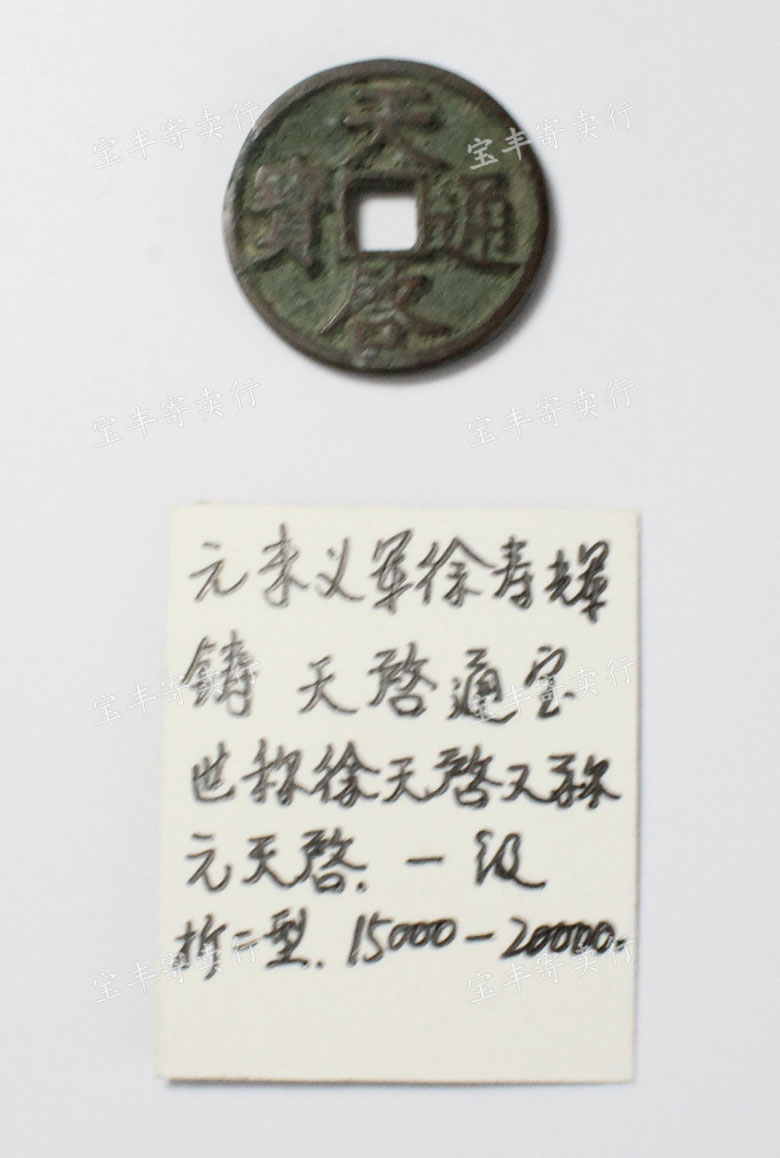 宝丰寄卖行 宝丰寄卖行
天啓通寳
宝丰寄卖行 宝丰寄卖行
元末义軍徐寿輝
铸 天啓通宝
宝丰寄卖行 宝丰寄卖行
世称徐天啓又称
元天啓. 一级
折二型. 15000-20000.
宝丰寄卖行 宝丰寄卖行